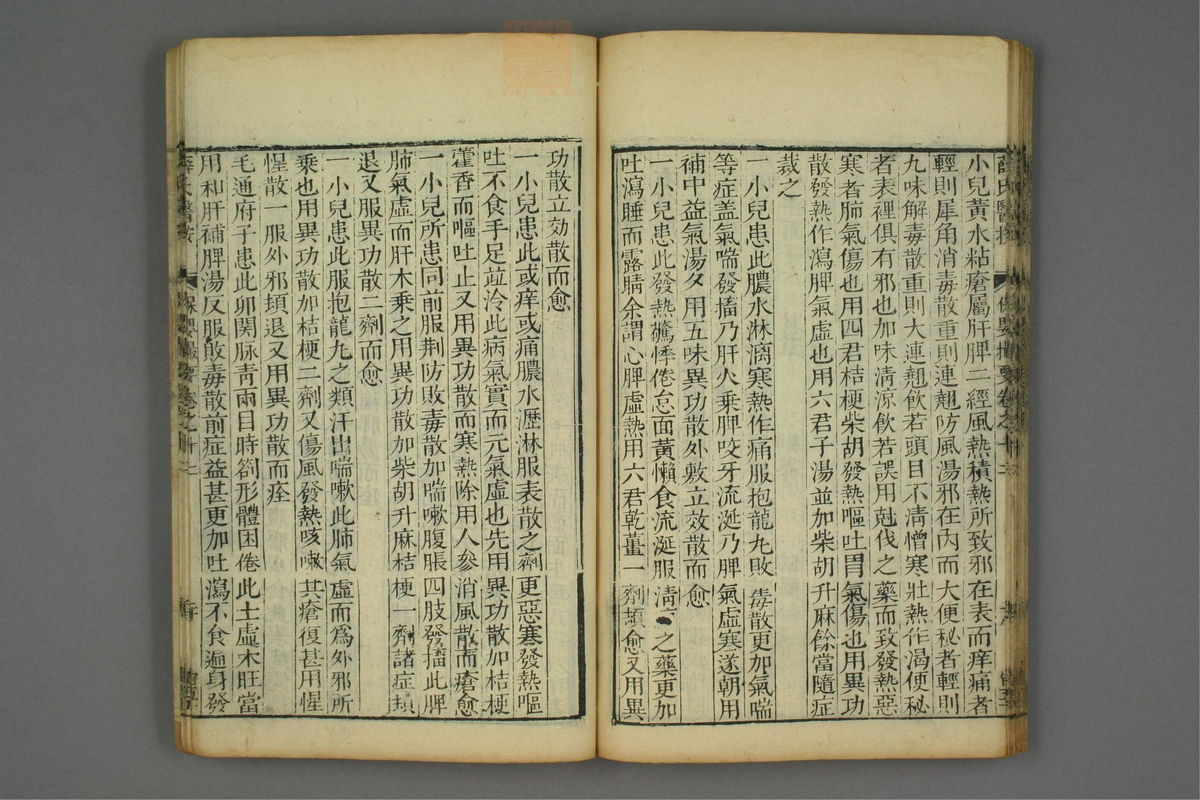 薛氏醫按
保嬰撮要卷之十二
小兒黃水粘瘡屬肝脾二經風熱積熱所致邪在表而痒痛者
輕則犀角消毒散重則連翹防風湯邪在內而大便秘者輕則
九味解毒散重則大連翹飲若頭目不清憎寒壯熱作渴便秘
者表裡俱有邪也加味清凉飲若誤用尅伐之藥而致發熱惡
寒者肺氣傷也用四君桔梗柴胡發熱嘔吐胃氣傷也用異功
散發熱作瀉脾氣虛也用六君子湯並加柴胡升麻餘當隨症
裁之
一小兒患此膿水淋漓寒熱作痛服抱龍丸敗毒散更加氣喘
等症盖氣喘發搐乃肝火乘脾咬牙流涎乃脾氣虛寒遂朝用
補中益氣湯夕用五味異功散外敷立效散而愈
一小兒患此發熱驚悸倦怠面黃懶食流涎服清下之藥更加
吐瀉睡而露睛余謂心脾虛熱用六君乾薑一劑頓愈又用異
功散立効散而愈
一小兒患此或痒或痛膿水瀝淋服表散之劑更惡寒發熱嘔
吐不食手足並冷此病氣實而元氣虛也先用異功散加桔梗
藿香而嘔吐止又用異功散而寒熱除用人參消風散而瘡愈
一小兒所患同前服荆防敗毒散加喘嗽腹脹四肢發搐此脾
肺氣虛而肝木乘之用異功散加柴胡升麻桔梗一劑諸症頓
退又服異功散二劑而愈
一小兒患此服抱龍丸之類汗出喘嗽此肺氣虛而爲外邪所
乘也用異功散加桔梗二劑又傷風發熱咳嗽其瘡復甚用惺
惺散一服外邪頓退又用異功散而痊
毛通府子患此卯関脉青兩目時劄形體困倦此土虛木旺當
用和肝補脾湯反服敗毒散前症益甚更加吐瀉不食遍身發
薛氏醫按
保嬰撮要卷之十二